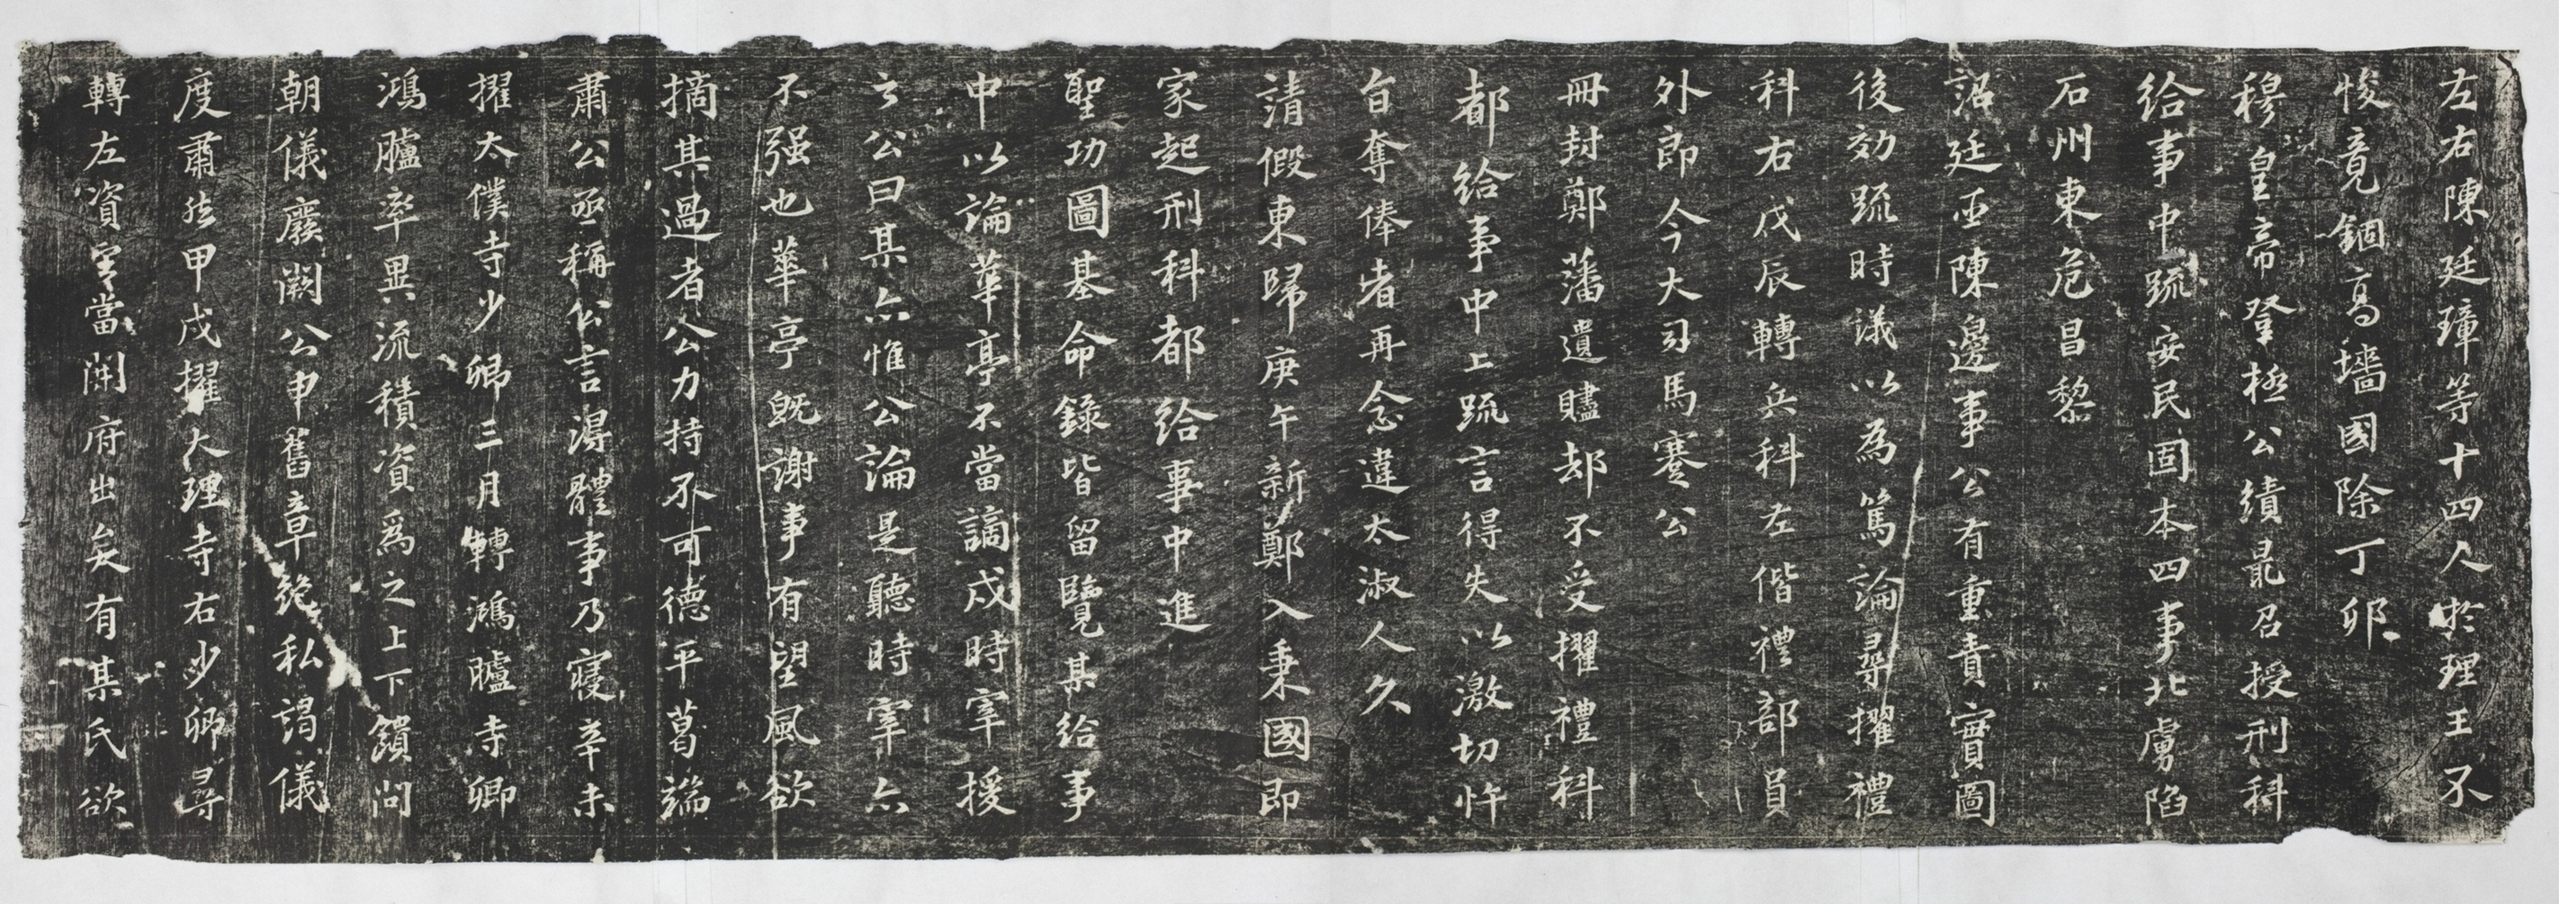 左右陳廷璋等十四人於理王不
悛竟錮高墻國除丁卯
穆皇帝登極公績最召授刑科
給事中疏安民固本四事北虜陷
石州東危昌黎
詔廷臣陳邊事公有重責實圖
後効疏時議以為篤論尋擢禮
科右戊辰轉兵科左偕禮部員
外郎今大司馬蹇公
冊封鄭藩遺賮却不受擢禮科
都給事中上疏言得失以激切忤
旨奪俸者再念違太淑人久
請假東歸庚午新鄭入秉國即
家起刑科都給事中進
聖功圖基命錄皆留覽某給事
中以論華亭不當謫戍時宰援
之公曰某亦惟公論是聽時宰亦
不强也華亭既謝事有望風欲
摘其過者公力持不可德平葛端
肅公亟稱公言得體事乃寢辛未
擢太僕寺少卿三月轉鴻臚寺卿
鴻臚率異流積資為之上下饋問
朝儀廢闕公申舊章絶私謁儀
度肅然甲戌擢大理寺右少卿尋
轉左資望當開府出矣有某氏欲